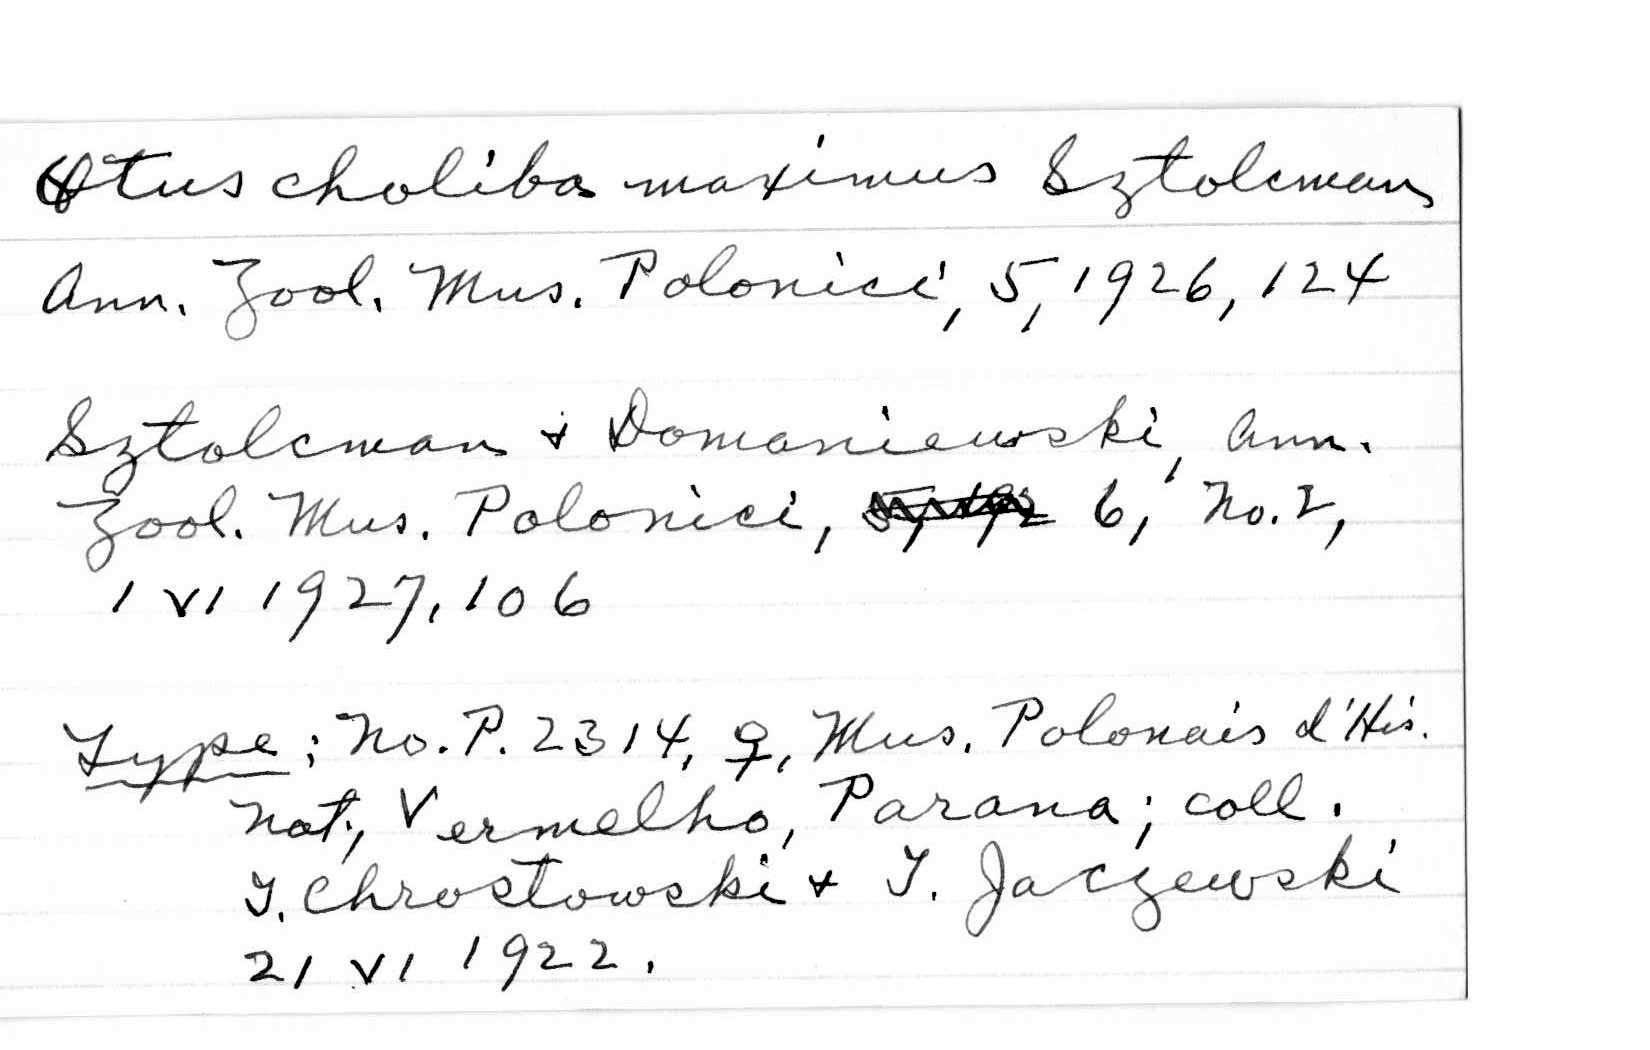 Otus choliba maximus Sztolcman
Ann. Zool. Mus. Polonici, 5, 1926, 124
Sztolcman + Domaniewski, Ann.
Zool. Mus. Polonici, 6, No. 2,
1 VI 1927, 106
Type: No. P. 2314, ♀, Mus. Polonais d'His.
Nat., Vermelho, Parana; coll.
T. Chrostowski + T. Jaczewski
21 VI 1922.